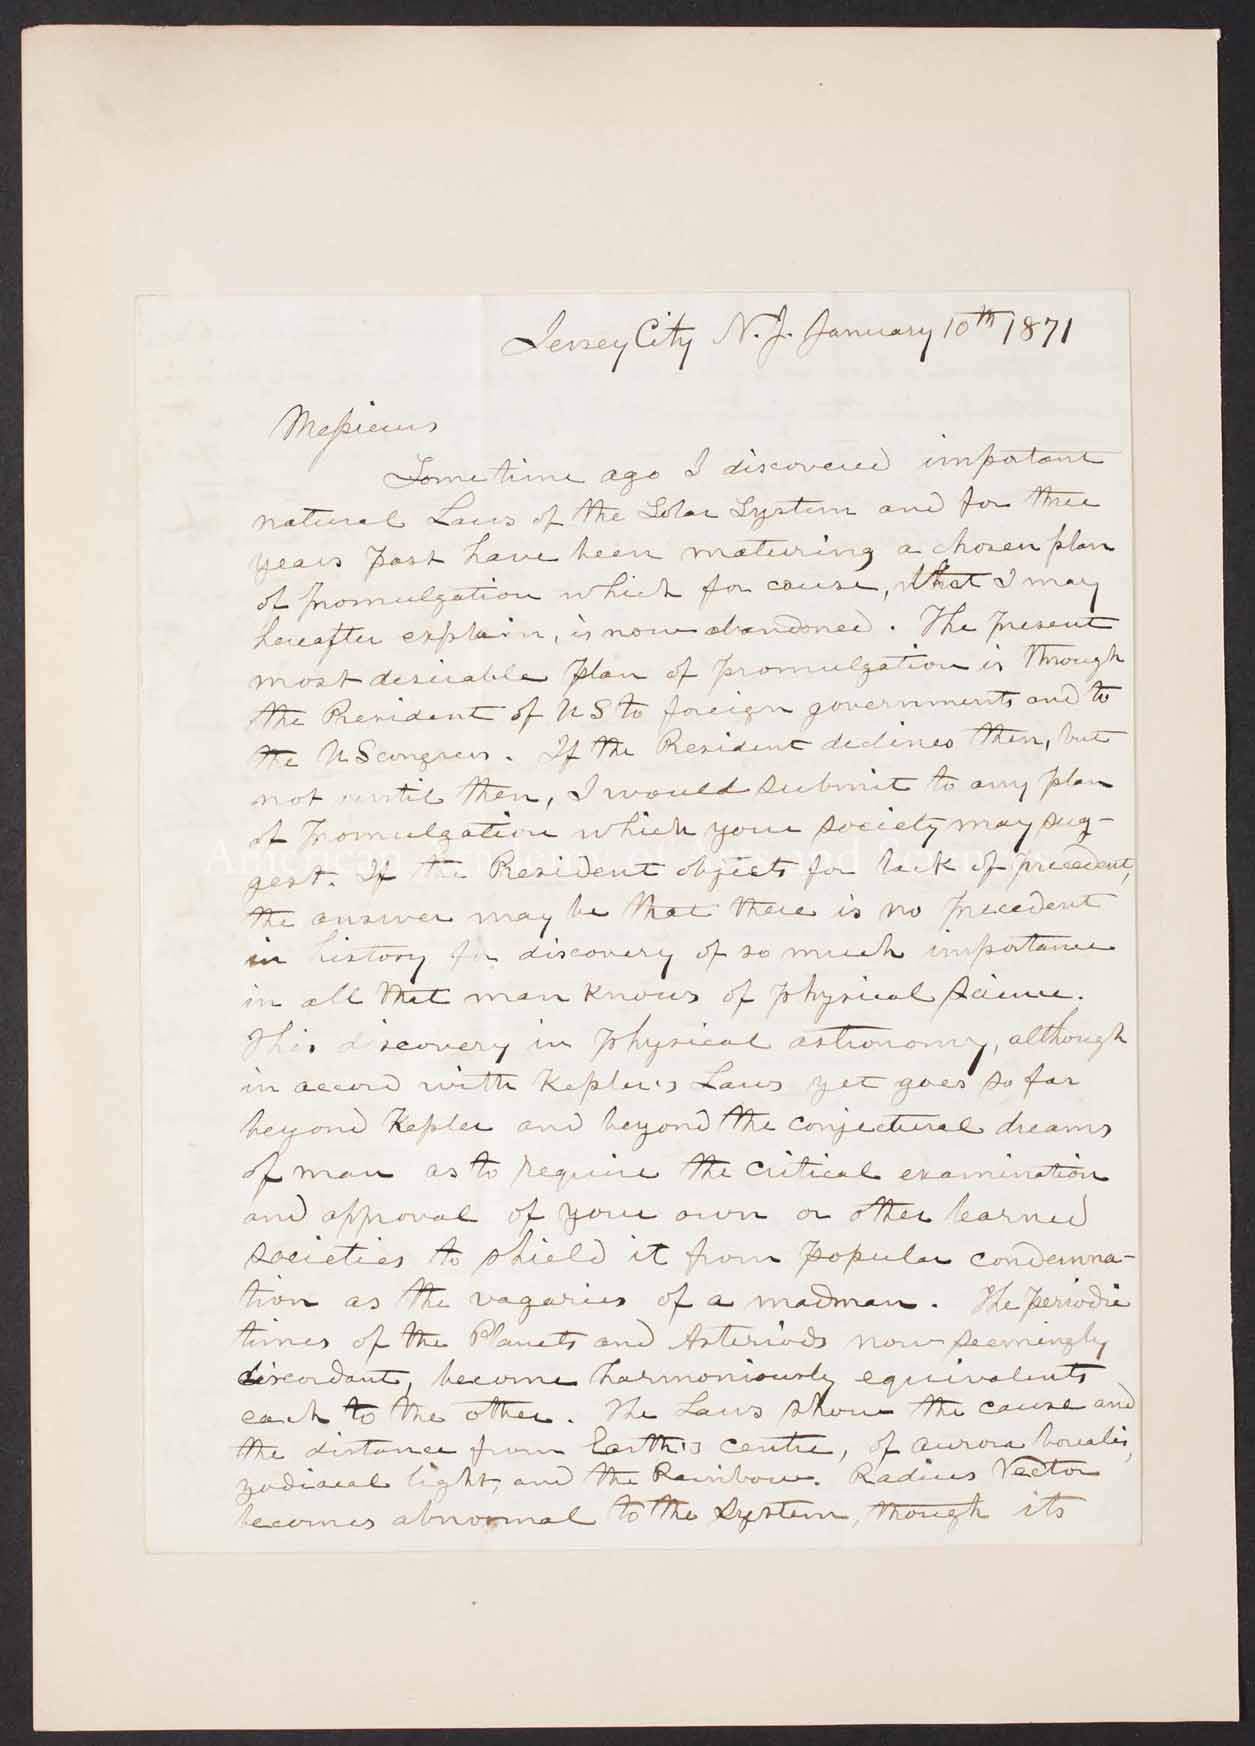 Jersey City N.J. January 10th 1871
Messieurs
Some time ago I discovered important
natural Laws of the Solar System and for three
years past have been maturing a chosen plan
of promulgation which for cause, that I may
hereafter explain, is now abandoned. The present
most desirable plan of promulgation is through
the President of US to foreign governments and to
the US congress. If the President declines then, but
not until then, I would submit to any plan
of promulgation which your society may sug-
gest. If the President objects for lack of precedent,
the answer may be that there is no precedent
in history for discovery of so much importance
in all that man knows of physical science.
This discovery in physical astronomy, although
in accord with Kepler's Laws yet goes so far
beyond Kepler and beyond the conjectural dreams
of man as to require the critical examination
and approval of your own or other learned
societies to shield it from popular condemna-
tion as the vagaries of a madman. The periodic
times of the Planets and Asteriods now seemingly
discordant, become harmoniously equivalents
each to the other. The Laws show the cause and
the distance from Earth's centre, of aurora borealis,
zodiacal light, and the Rainbow. Radius Vector
becomes abnormal to the System, though its
American Academy of Arts and Sciences